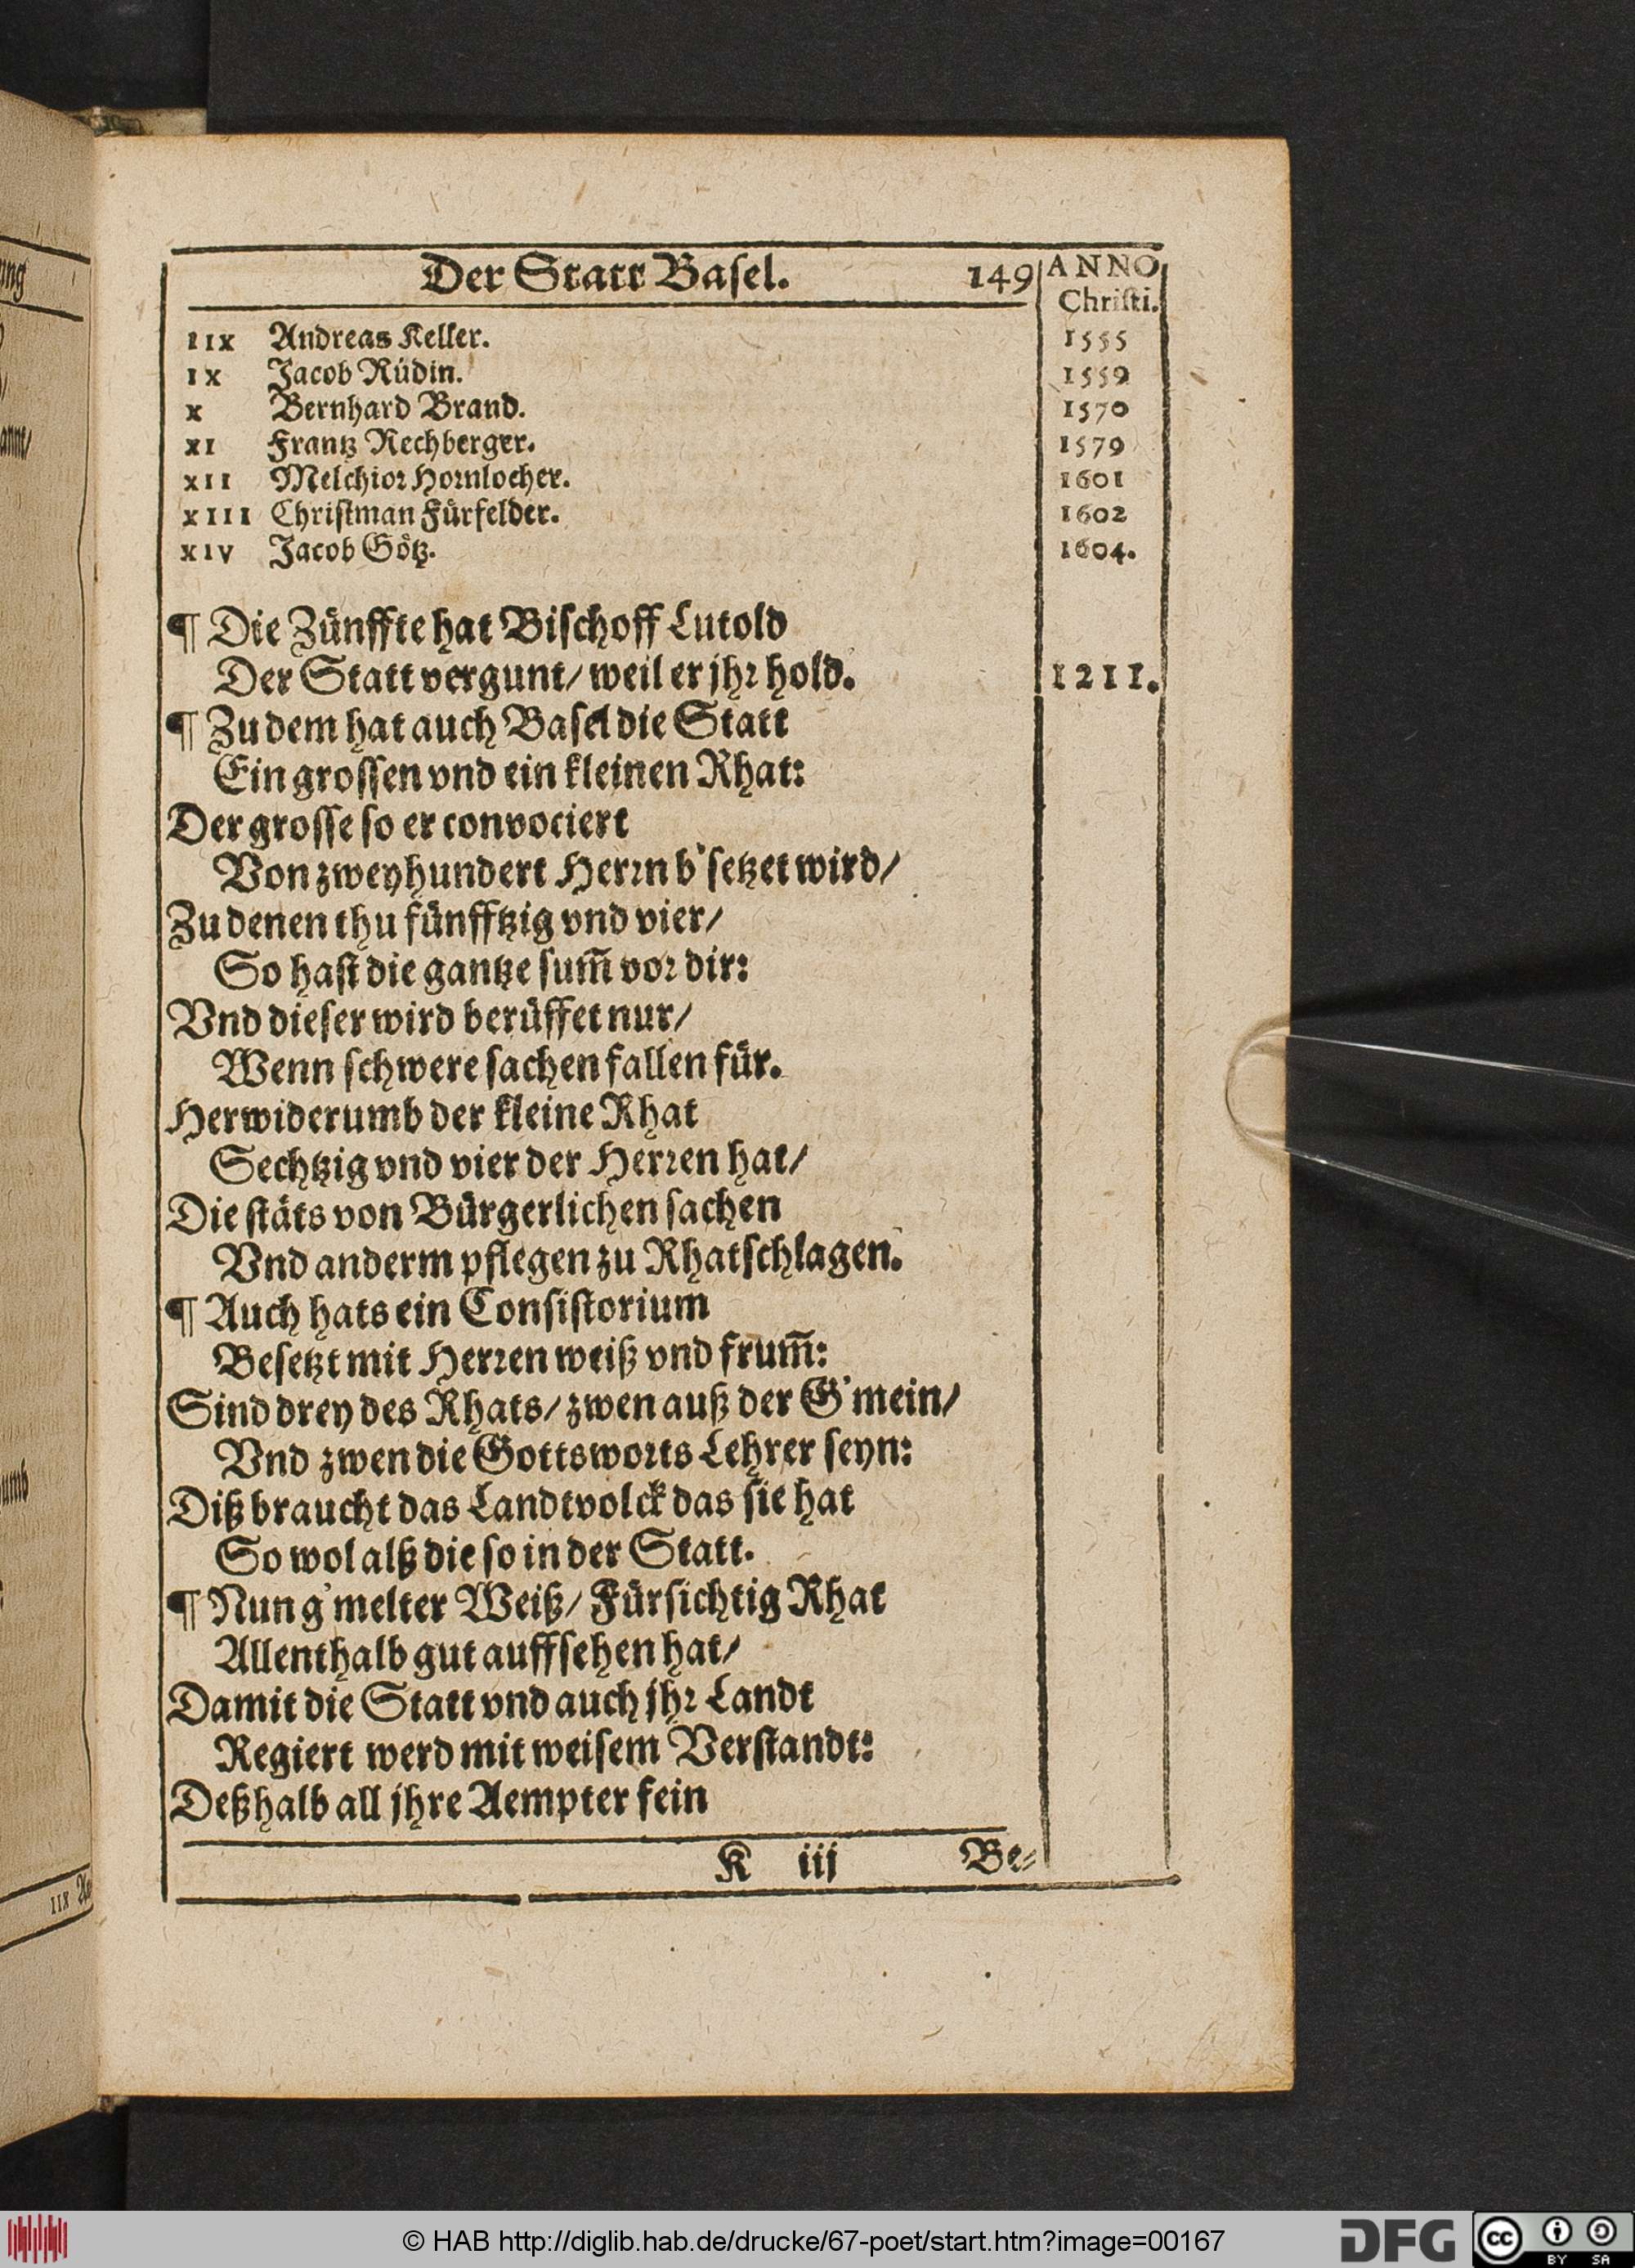 Der Statt Basel. 149 ANNO
Christi.
IIX Andreas Keller. 1555
IX Jacob Rüdin. 1559
X Bernhard Brand. 1570
XI Frantz Rechberger. 1579
XII Melchior Hornlocher. 1601
XIII Christman Fürfelder. 1602
XIV Jacob Götz. 1604.
¶ Die Zünffte hat Bischoff Lutold
Der Statt vergunt/ weil er jhr hold. 1211.
¶ Zu dem hat auch Basel die Statt
Ein grossen vnd ein kleinen Rhat:
Der grosse so er convociert
Von zweyhundert Herrn b'setzet wird/
Zu denen thu fünfftzig vnd vier/
So hast die gantze sum̄ vor dir:
Vnd dieser wird berüffet nur/
Wenn schwere sachen fallen für.
Herwiderumb der kleine Rhat
Sechtzig vnd vier der Herren hat/
Die stäts von Bürgerlichen sachen
Vnd anderm pflegen zu Rhatschlagen.
¶ Auch hats ein Consistorium
Besetzt mit Herren weiß vnd frum̄:
Sind drey des Rhats/ zwen auß der G'mein/
Vnd zwen die Gottsworts Lehrer seyn:
Diß braucht das Landtvolck das sie hat
So wol alß die so in der Statt.
¶ Nun g'melter Weiß/ Fürsichtig Rhat
Allenthalb gut auffsehen hat/
Damit die Statt vnd auch jhr Landt
Regiert werd mit weisem Verstandt:
Deßhalb all jhre Aempter fein
K iij Be-
© HAB http://diglib.hab.de/drucke/67-poet/start.htm?image=00167
DFG
cc BY SA